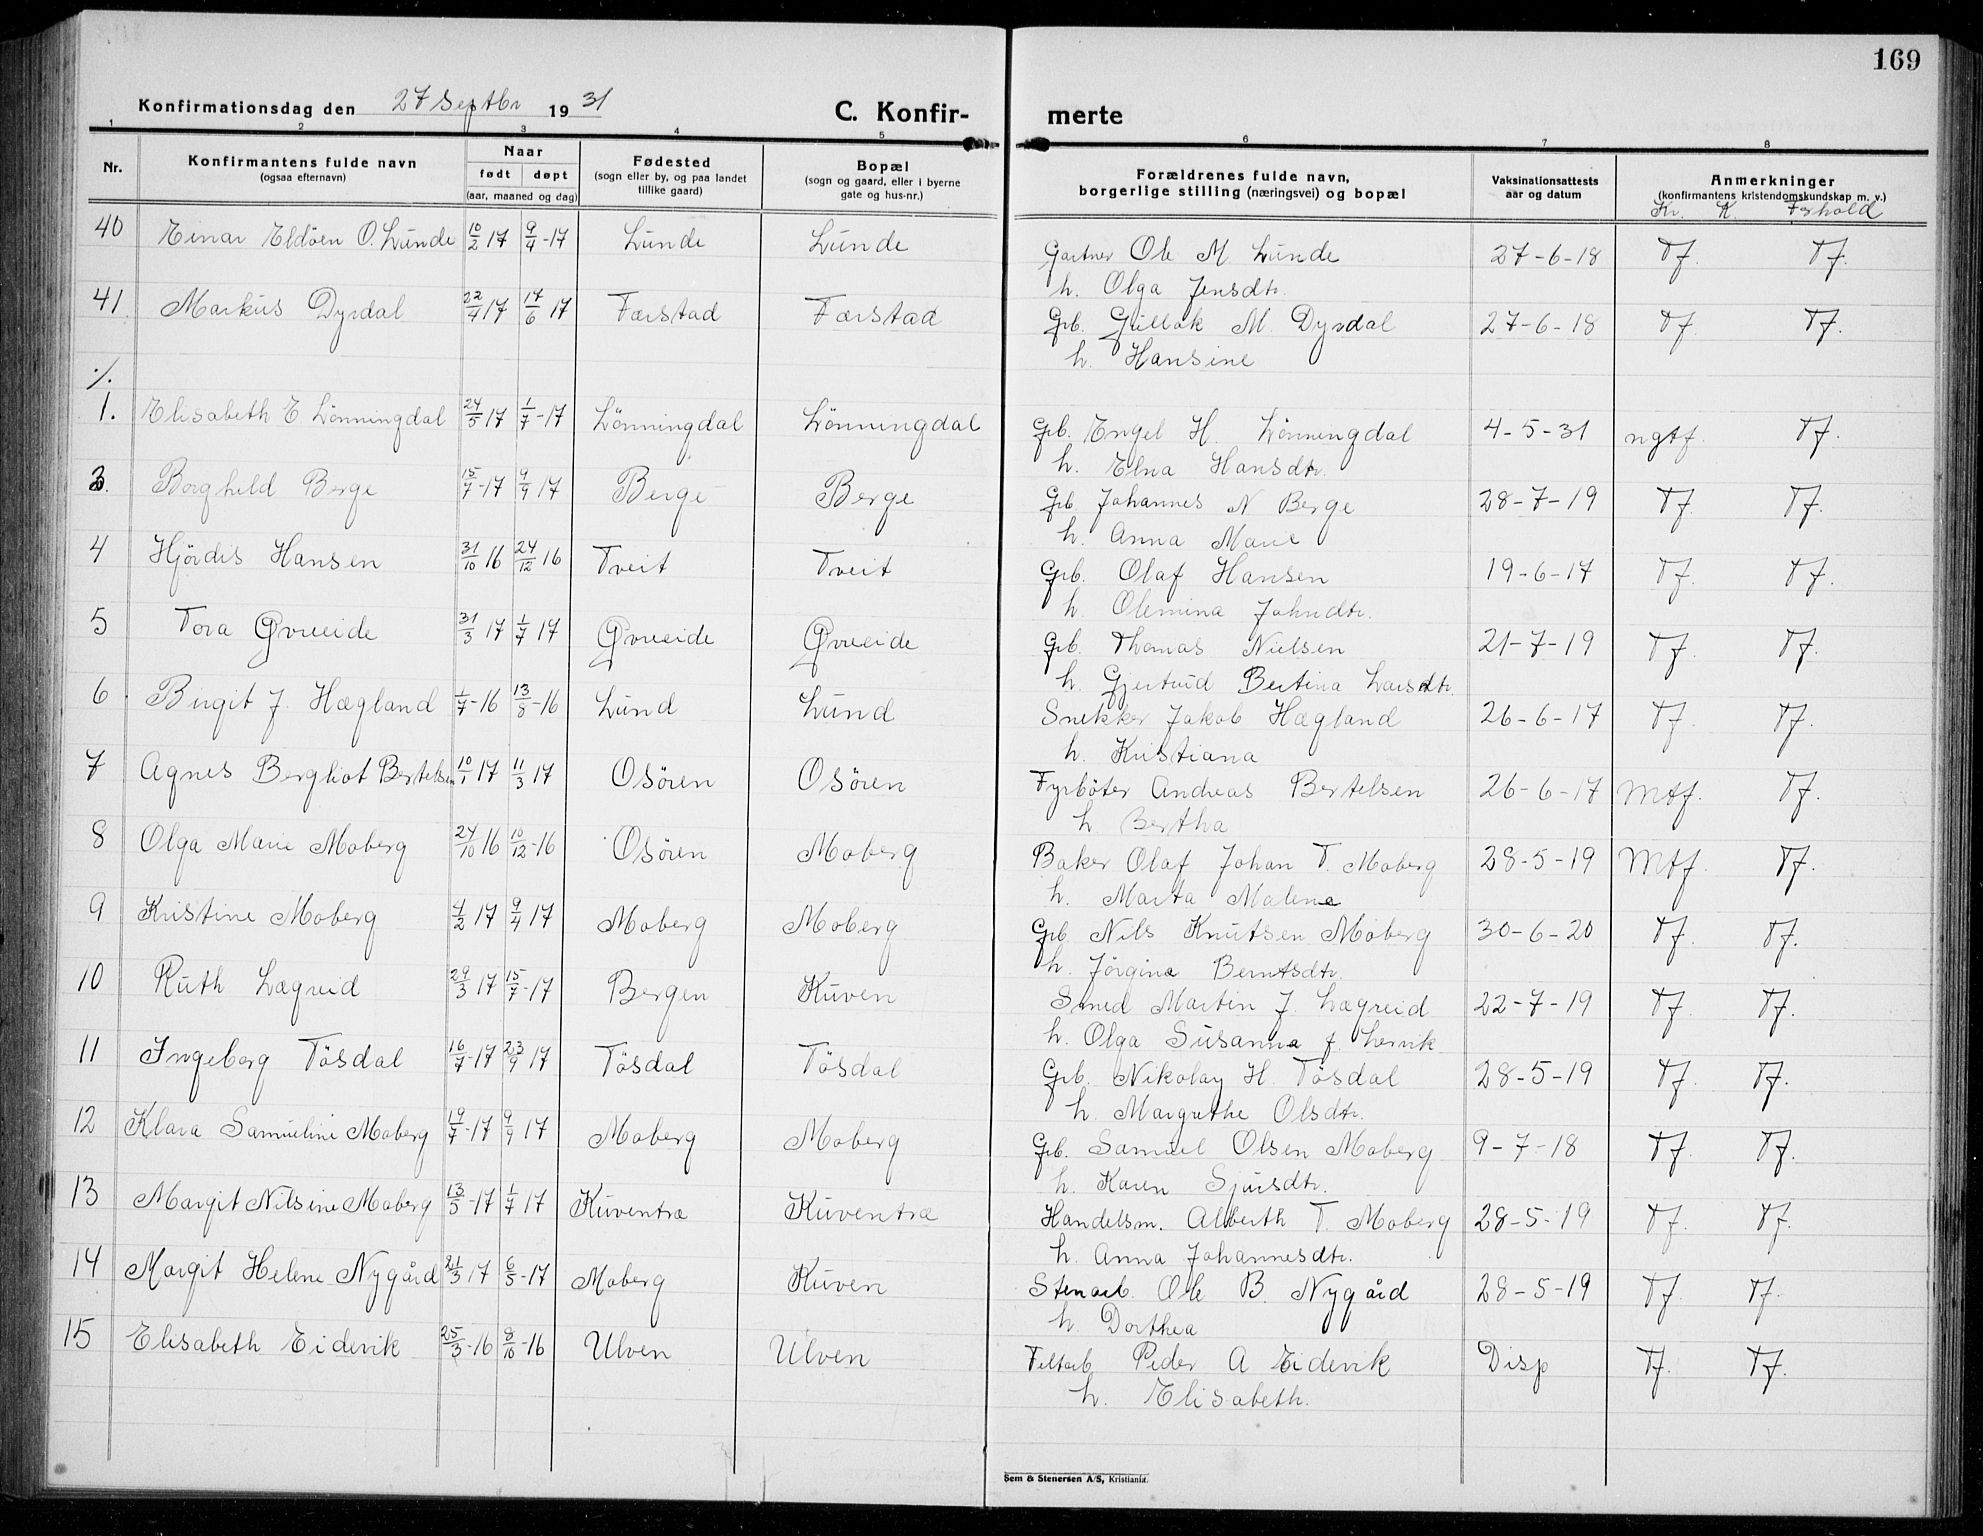 169
Konfirmationsdag den 27 Septbr 1931
C. Konfir- merte
1 2 3 4 5 6 7 8
Nr. Konfirmantens fulde navn (ogsaa efternavn) Naar født døpt (aar, maaned og dag) Fødested (sogn eller by, og paa landet tillike gaard) Bopæl (sogn og gaard, eller i byerne gate og hus-nr.) Forældrenes fulde navn, borgerlige stilling (næringsvei) og bopæl Vaksinationsattests aar og datum Anmerkninger (konfirmantens kristendomskundskap m. v.)
Kr. K. Forhold
40 Einar Eldöen O. Lunde 10/2 17 9/4-17 Lunde Lunde Gartner Ole M Lunde 27-6-18 Tf. Tf.
h. Olga Jensdtr.
41 Markus Dyrdal 22/4 17 17/6 17 Færstad Færstad Grb. Gullak M. Dyrdal 27-6-18 Tf. Tf.
h. Hansine
%.
1. Elisabeth E Lönningdal 24/5 17 1/7-17 Lönningdal Lönningdal Grb. Engel H. Lönningdal 4-5-31 ngtf. Tf.
h. Elna Hansdtr.
3. Borghild Berge 15/7-17 9/9 17 Berge Berge Grb. Johannes N Berge 28-7-19 Tf. Tf.
h. Anna Marie
4 Hjördis Hansen 31/10 16 24/12 16 Tveit Tveit Grb. Olaf Hansen 19-6-17 Tf. Tf.
h. Olemina Johndtr.
5 Tora Øvreeide 31/3 17 1/7 17 Øvreeide Øvreeide Grb. Thomas Nielsen 21-7-19 Tf. Tf.
h. Gjertrud Bertina Larsdtr.
6 Birgit J. Hægland 1/7-16 13/8-16 Lund Lund Snekker Jakob Hægland 26-6-17 Tf. Tf.
h. Kristiana
7 Agnes Bergliot Bertelsen 10/1 17 11/3 17 Osören Osören Fyrböter Andreas Bertelsen 26-6-17 Mtf. Tf.
h Bertha
8 Olga Marie Moberg 24/10 16 10/12-16 Osören Moberg Baker Olaf Johan T. Moberg 28-5-19 Mtf. Tf.
h. Marta Malene
9 Kristine Moberg 4/2 17 9/4 17 Moberg Moberg Grb. Nils Knutsen Moberg 30-6-20 Tf. Tf.
h. Jörgine Berntsdtr.
10 Ruth Lægreid 29/3 17 15/7-17 Bergen Kuven Smed Martin J. Lægreid 22-7-19 Tf. Tf.
h. Olga Susanna f. Lervik
11 Ingeborg Tösdal 16/7-17 23/9 17 Tösdal Tösdal Grb. Nikolay H. Tösdal 28-5-19 Tf. Tf.
h. Margrethe Olsdtr.
12 Klara Samueline Moberg 19/7-17 9/9 17 Moberg Moberg Grb. Samuel Olsen Moberg 9-7-18 Tf. Tf.
h. Karen Sjursdtr.
13 Margit Nilsine Moberg 13/5-17 1/7 17 Kuventræ Kuventræ Handelsm. Alberth T. Moberg 28-5-19 Tf. Tf.
h. Anna Johannesdtr.
14 Margit Helene Nygård 21/3 17 6/5-17 Moberg Kuven Stenarb. Ole B. Nygård 28-5-19 Tf. Tf.
h. Dorthea
15 Elisabeth Eidevik 25/3-16 8/10-16 Ulven Ulven Feltarb Peder A Eidevik Disp Tf. Tf.
h. Elisabeth.
Sem & Stenersen A/S, Kristiania.